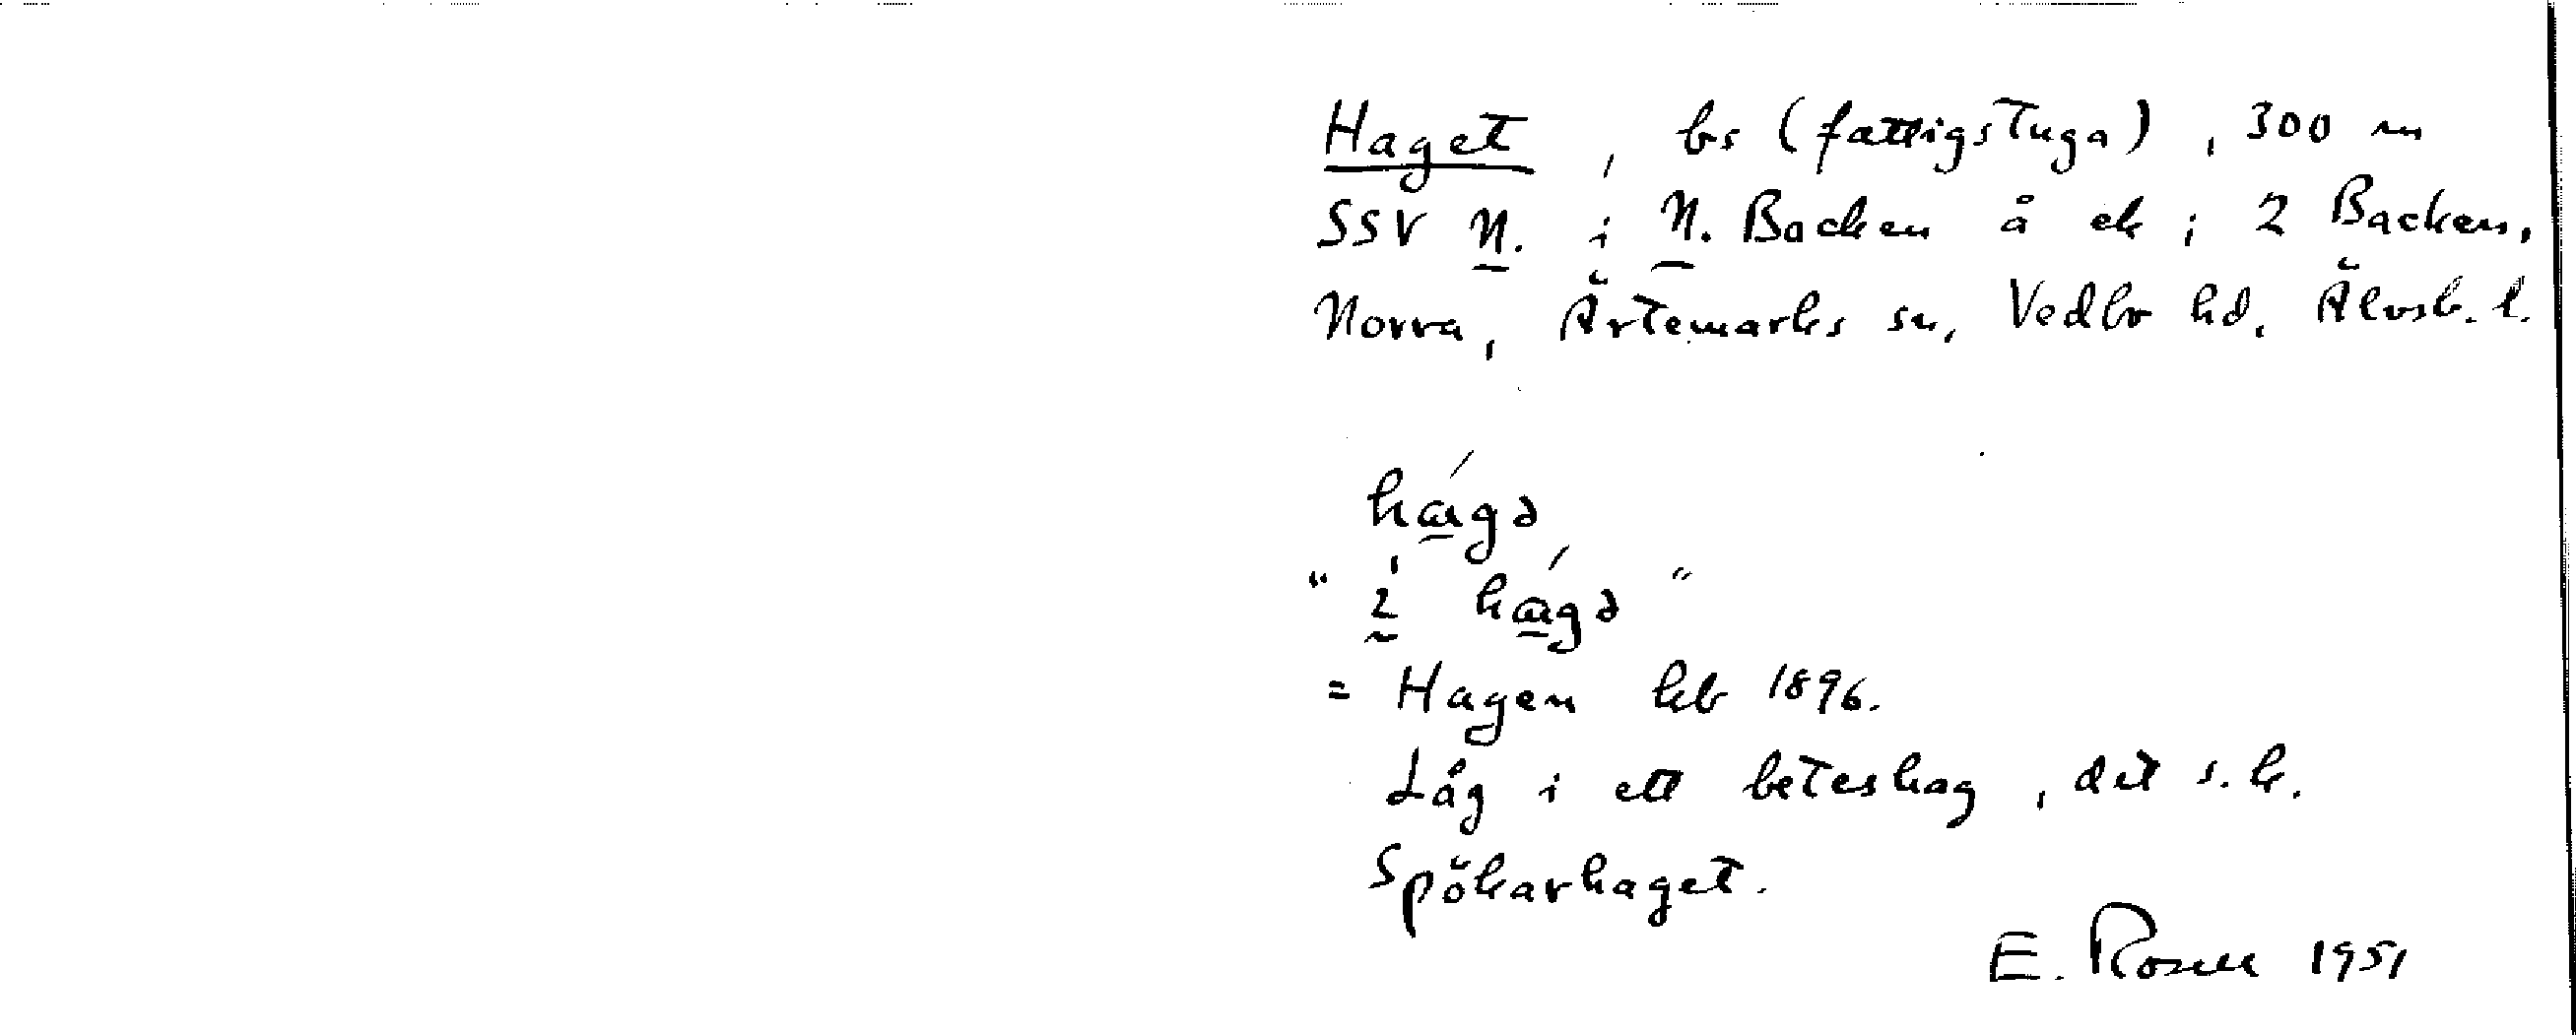 Haget, bs (fattigstuga), 300 m
SSV N. i N. Backen å ek i 2 Backen,
Norra, Ärtemarks sn, Vedbo hd, Älvsb. l.
hágə
"i hágə"
= Hagen kb 1896.
Låg i ett beteshag, det s.k.
Spökarhaget.
E. Rosell 1951